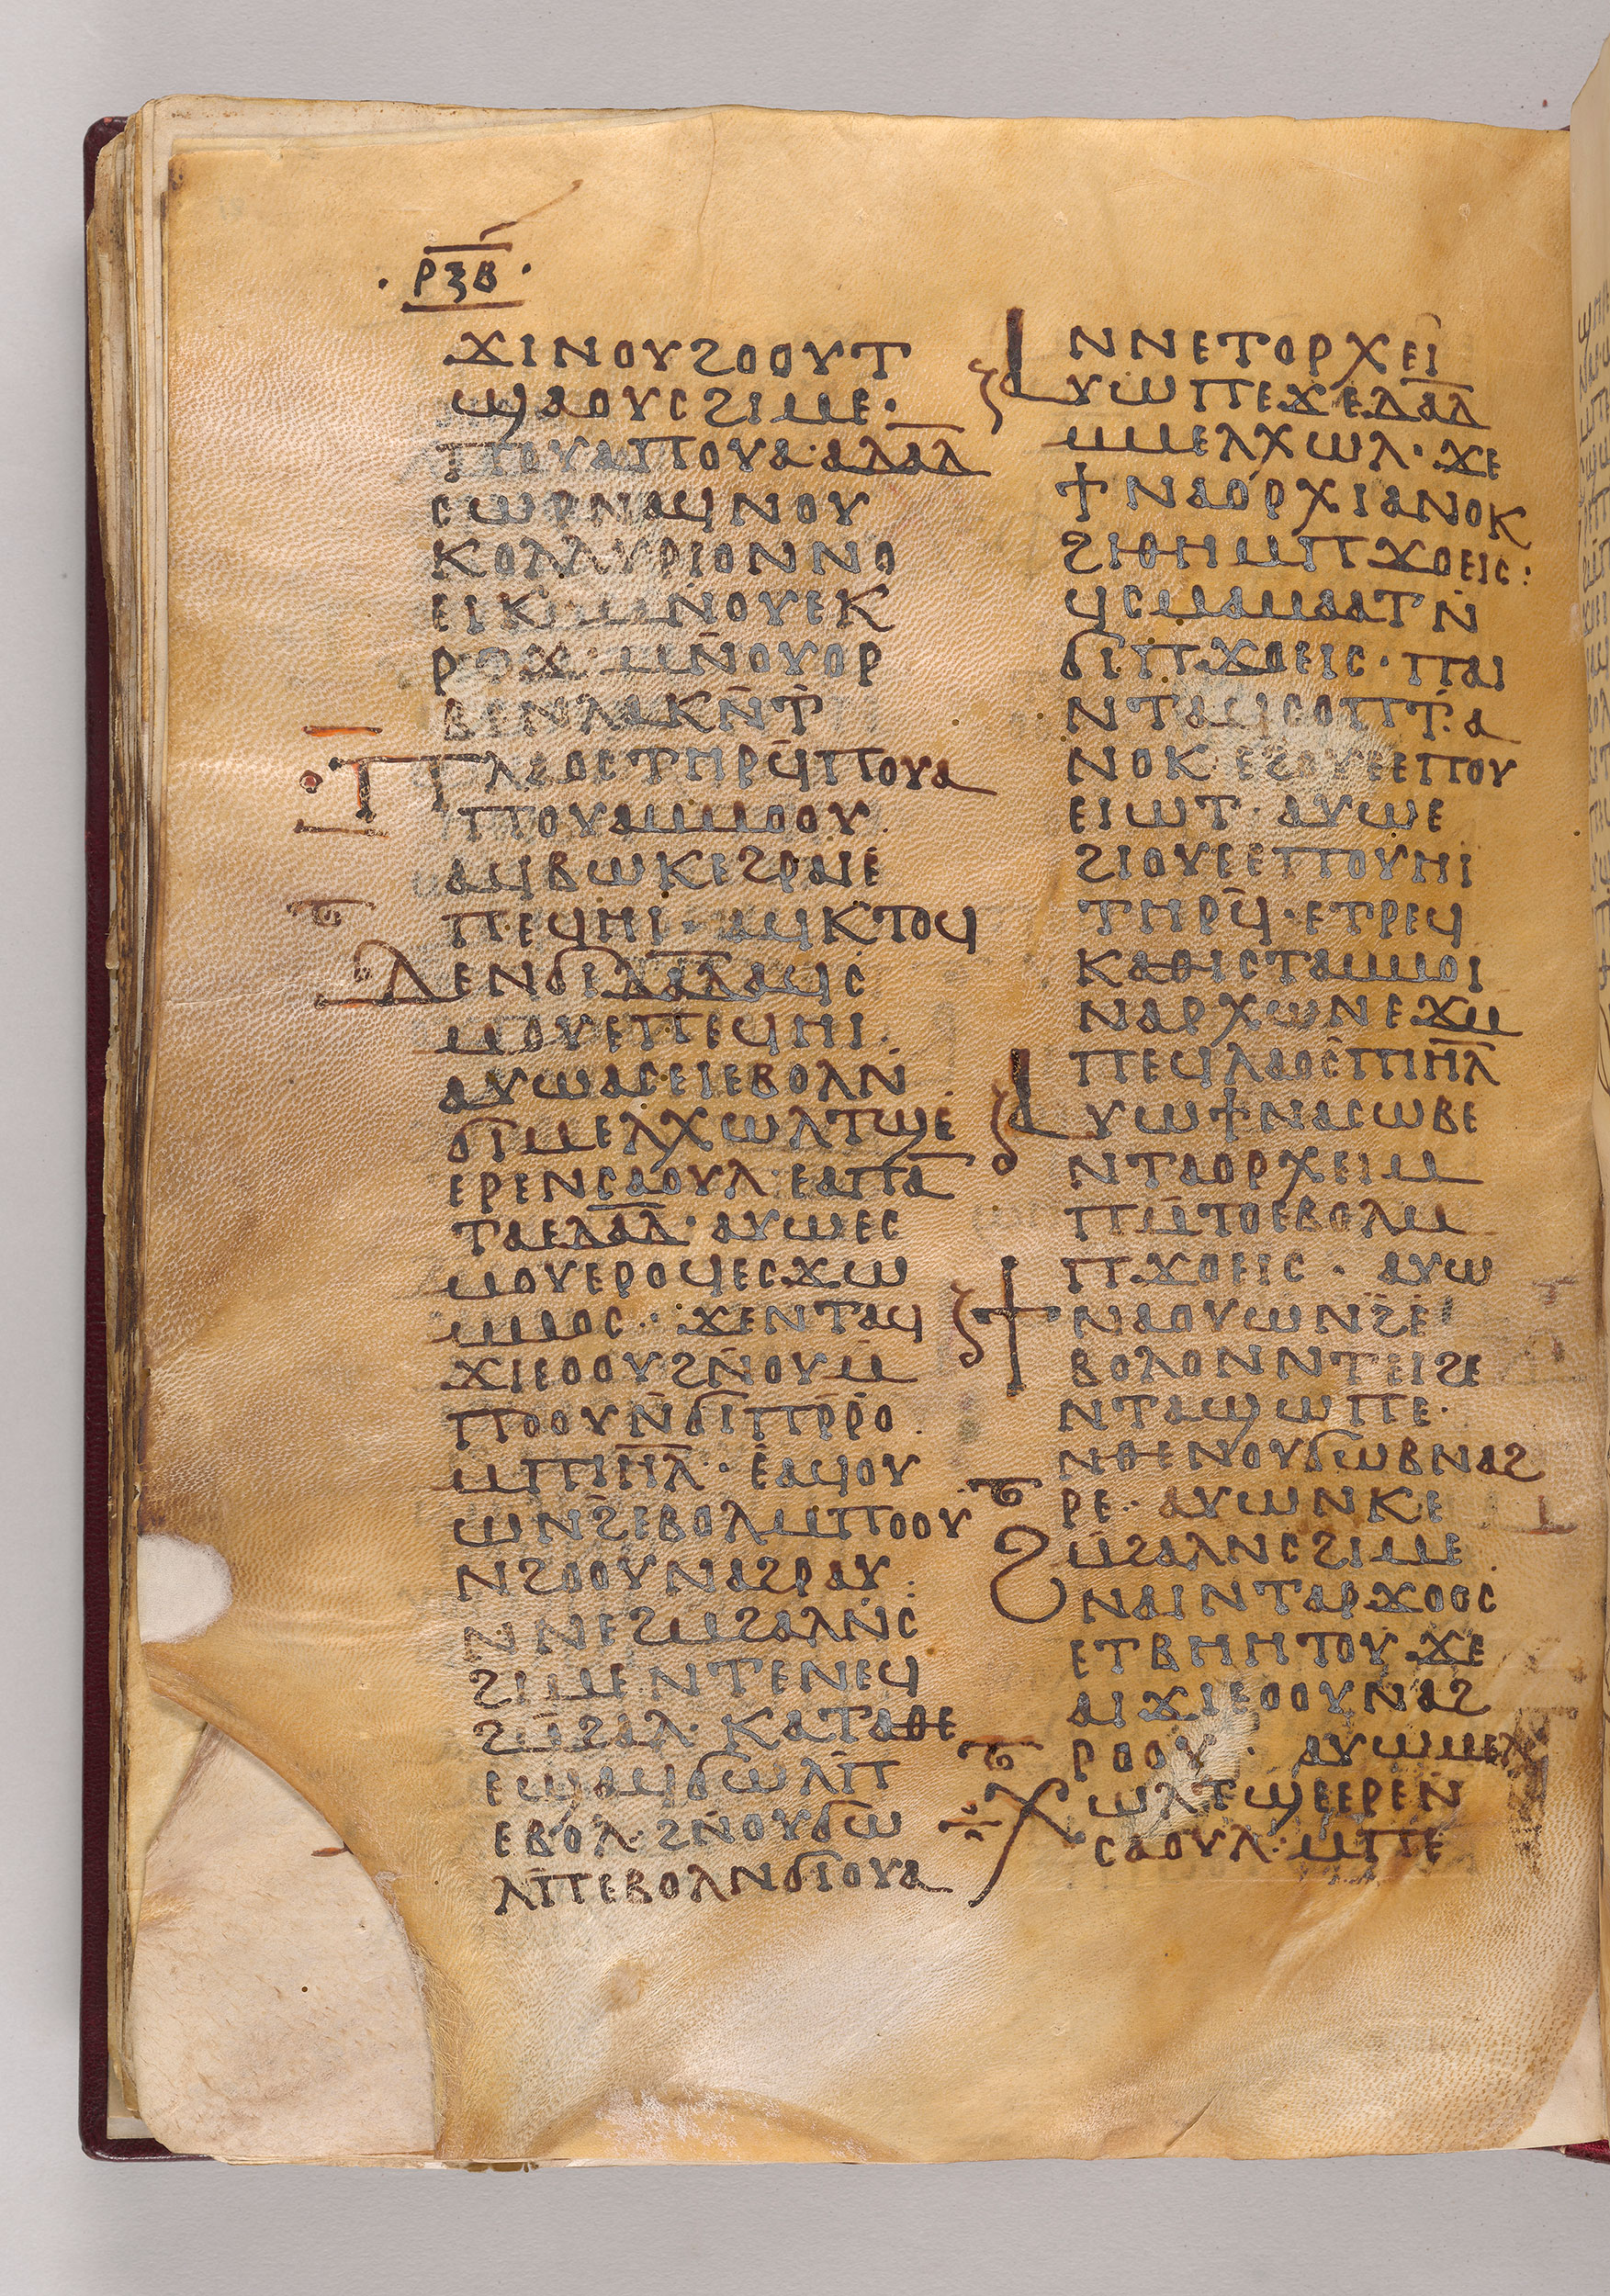 ⲣⲝⲃ
ϫⲓⲛⲟⲩϩⲟⲟⲩⲧ
ϣⲁⲟⲩⲥϩⲓⲙⲉ·
ⲡⲟⲩⲁⲡⲟⲩⲁ·ⲁⲇⲁ̅ⲇ̅
ⲥⲱⲣⲛⲁϥⲛⲟⲩ
ⲕⲟⲗⲗⲩⲣⲓⲟⲛⲛⲟ
ⲉⲓⲕ·ⲙⲛⲟⲩⲉⲕ
ⲣⲟϫ·ⲙⲛ̅ⲟⲩⲟⲣ
ⲃⲉⲛⲗⲁⲕⲛ̅ⲧ
ⲡⲗⲁⲟⲥⲧⲏⲣϥ̅ⲡⲟⲩⲁ
ⲡⲟⲩⲁⲙⲙⲟⲟⲩ
ⲁϥⲃⲱⲕⲉϩⲣⲁⲓⲉ
ⲡⲉϥⲏⲓ·ⲁϥⲕⲧⲟϥ
ⲇⲉⲛϭⲓⲇⲁ̅ⲇ̅ⲁϥⲥ
ⲙⲟⲩⲉⲡⲉϥⲏⲓ·
ⲁⲩⲱⲁⲥⲉⲓⲉⲃⲟⲗⲛ̅
ϭⲓⲙⲉⲗⲭⲱⲗⲧϣⲉ
ⲉⲣⲉⲛⲥⲁⲟⲩⲗ·ⲉⲁⲡⲁ̅
ⲧⲁⲉⲇⲁ̅ⲇ̅·ⲁⲩⲱⲉⲥ
ⲙⲟⲩⲉⲣⲟϥⲉⲥϫⲱ
ⲙⲙⲟⲥ·ϫⲉⲛⲧⲁϥ
ϫⲓⲉⲟⲟⲩϩⲛ̅ⲟⲩⲙ
ⲡⲟⲟⲩⲛ̅ϭⲓⲡⲣ̅ⲣⲟ
ⲙⲡⲓⲏ̅ⲗ̅·ⲉⲁϥⲟⲩ
ⲱⲛϩ̅ⲉⲃⲟⲗⲙⲡⲟⲟⲩ
ⲛϩⲟⲟⲩⲛⲁϩⲣⲁⲩ
ⲛⲛⲉϩⲙϩⲁⲗⲛ̅ⲥ
ϩⲓⲙⲉⲛⲧⲉⲛⲉϥ
ϩⲙ̅ϩⲁⲗ·ⲕⲁⲧⲁⲑⲉ
ⲉϣⲁϥϭⲱⲗⲡ̅
ⲉⲃⲟⲗ·ϩⲛ̅ⲟⲩϭⲱ
ⲗⲡ̅ⲉⲃⲟⲗⲛϭⲓⲟⲩⲁ
ⲛⲛⲉⲧⲟⲣⲭⲉⲓ
ⲁⲩⲱⲡⲉϫⲉⲇⲁ̅ⲇ̅
ⲙⲙⲉⲗⲭⲱⲗ·ϫⲉ
ϯⲛⲁⲟⲣⲭⲓⲁⲛⲟⲕ
ϩⲓⲑⲏⲙⲡϫⲟⲉⲓⲥ:
ϥⲥⲙⲁⲙⲁⲁⲧⲛ̅
ϭⲓⲡϫⲟⲉⲓⲥ·ⲡⲁⲓ
ⲛⲧⲁϥⲥⲟⲡⲧ̅·ⲁ
ⲛⲟⲕ·ⲉϩⲟⲩⲉⲉⲡⲟⲩ
ⲉⲓⲱⲧ·ⲁⲩⲱⲉ
ϩⲟⲩⲉⲉⲡⲟⲩⲏⲓ
ⲧⲏⲣϥ̅·ⲉⲧⲣⲉϥ
ⲕⲁⲑⲓⲥⲧⲁⲙⲙⲟⲓ
ⲛⲁⲣⲭⲱⲛⲉϫⲙ
ⲡⲉϥⲗⲁⲟⲥⲡⲓⲏ̅ⲗ̅
ⲁⲩⲱϯⲛⲁⲥⲱⲃⲉ
ⲛⲧⲁⲟⲣⲭⲉⲓⲙ
ⲡⲙ̅ⲧⲟⲉⲃⲟⲗⲙ
ⲡϫⲟⲉⲓⲥ·ⲁⲩⲱ
ϯⲛⲁⲟⲩⲱⲛϩ̅ⲉ
ⲃⲟⲗⲟⲛⲛⲧⲉⲓϩⲉ
ⲛⲧⲁϣⲱⲡⲉ·
ⲛⲑⲉⲛⲟⲩϭⲱⲃⲛⲁϩ
ⲣⲉ·ⲁⲩⲱⲛⲕⲉ
ϩⲙϩⲁⲗⲛⲥϩⲓⲙⲉ
ⲛⲁⲓⲛⲧⲁⲣϫⲟⲟⲥ
ⲉⲧⲃⲏⲏⲧⲟⲩ·ϫⲉ
ⲁⲓϫⲓⲉⲟⲟⲩⲛⲁϩ
ⲣⲟⲟⲩ·ⲁⲩⲱⲙⲉⲗ
ⲭⲱⲗⲧϣⲉⲉⲣⲉⲛ
ⲥⲁⲟⲩⲗ·ⲙⲡⲉ